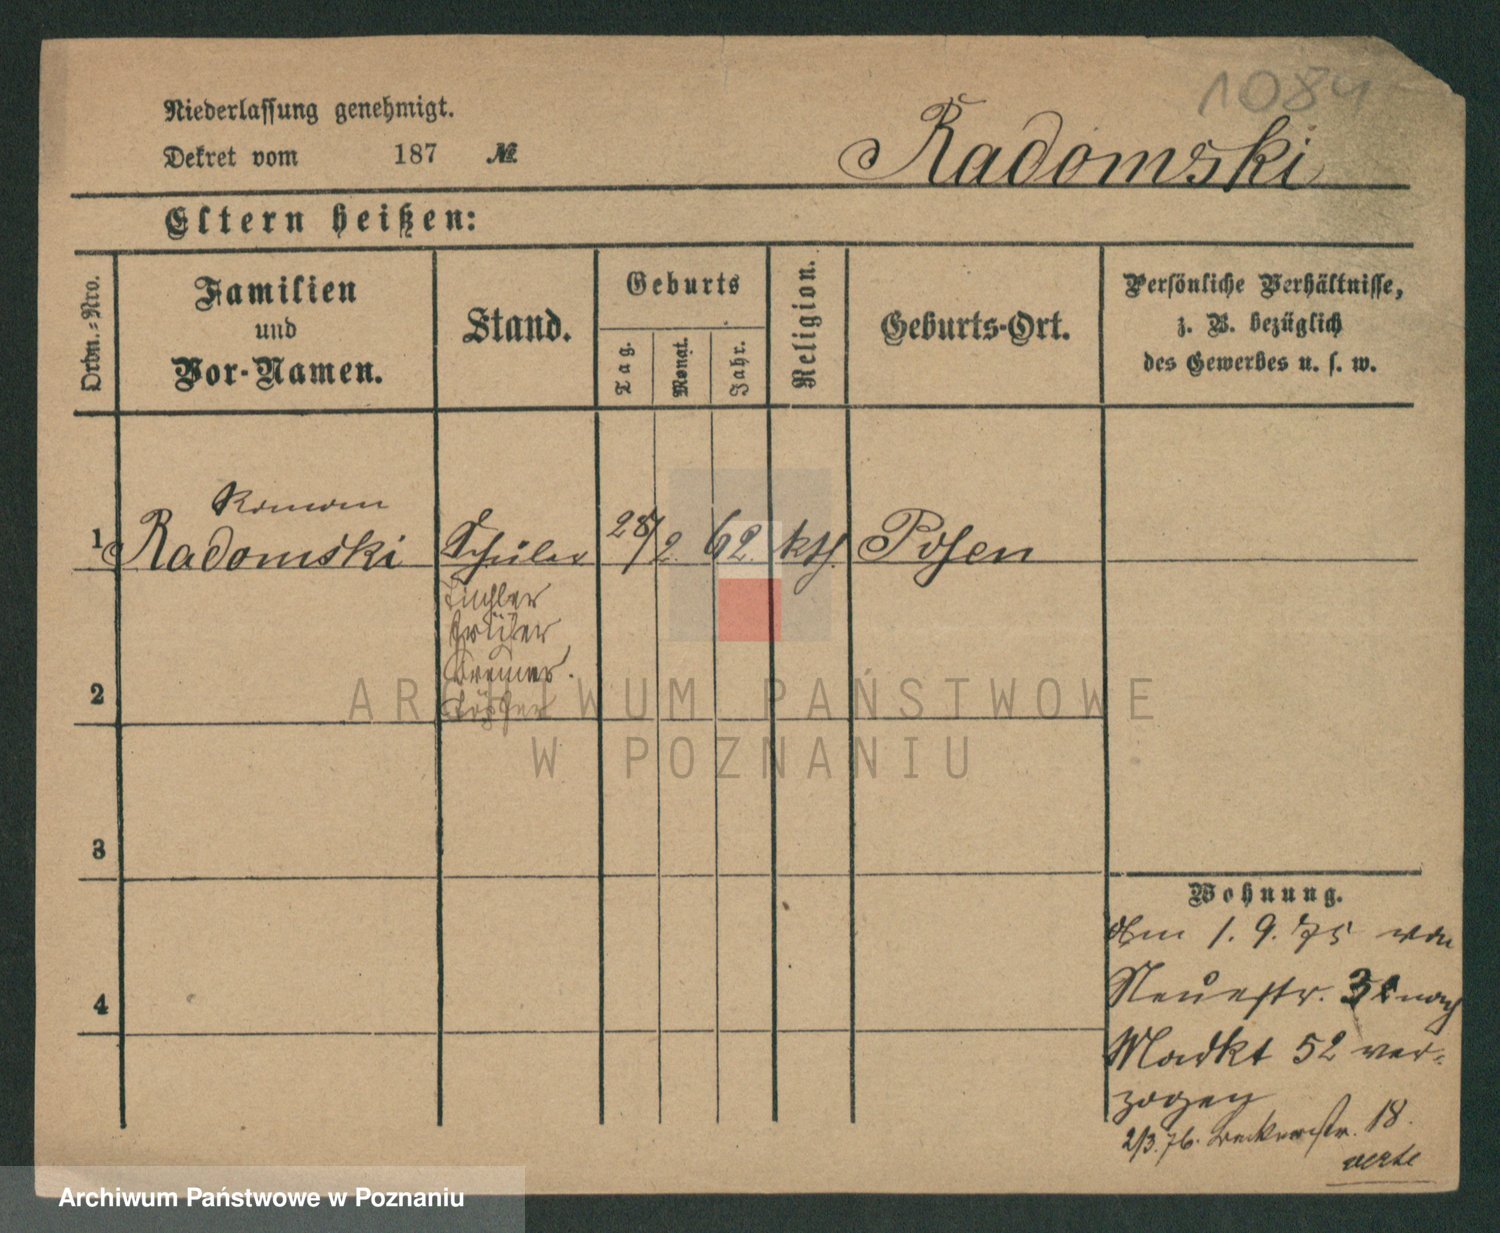 1084
Niederlassung genehmigt.
Dekret vom 187 №
Radomski
Eltern heißen:
Ordn.-Nro.
Familien
und
Vor-Namen.
Stand.
Geburts
Tag.
Monat.
Jahr.
Religion.
Geburts-Ort.
Persönliche Verhältnisse,
z. B. bezüglich
des Gewerbes u. s. w.
Roman
1 Radomski Schüler 28/2. 62. kth. Posen
2
3
4
ARCHIWUM PAŃSTWOWE
W POZNANIU
Wohnung.
1. 9. 75 von
Neuestr. nach
Markt 52 ver-
zogen
2/3. 76. 18.
verte
Archiwum Państwowe w Poznaniu